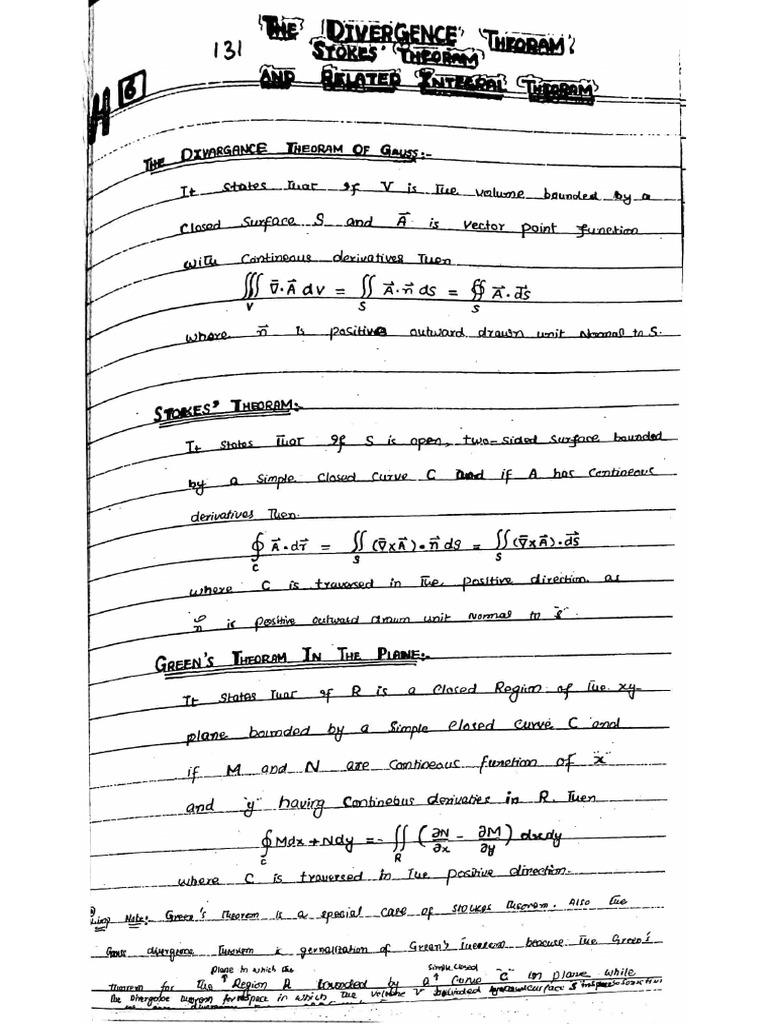 THE DIVERGENCE THEORAM
131 STOKES' THEORAM
AND RELATED INTEGRAL THEORAM
H 6
THE DIVARGANCE THEORAM OF GAUSS:-
It states That If V is The volume bounded by a
Closed Surface S and A⃗ is vector point function
with Contineous derivatives Then
∭_V ∇̄·A⃗ dV = ∬_S A⃗·n⃗ ds = ∯_S A⃗·d⃗s
where n⃗ is positive outward drawn unit Normal to S.
STOKES' THEORAM:-
It states That If S is open, two-sided surface bounded
by a Simple Closed Curve C and if A has Contineous
derivatives Then.
∮_C A⃗·dr⃗ = ∬_S (∇̄×A⃗)·n⃗ ds = ∬_S (∇̄×A⃗)·d⃗s
where C is traversed in The positive direction as
n is positive outward drawn unit Normal to "s"
GREEN'S THEORAM IN THE PLANE:-
It States That If R is a Closed Region of The xy-
plane bounded by a Simple Closed Curve C and
if M and N are Contineous function of "x"
and "y" having Contineous derivaties in R. Then
∮_C Mdx + Ndy = ∬_R (∂N/∂x − ∂M/∂y) dxdy
where C is traversed in The positive direction.
Note: Green's Theorem is a special case of Stokes Theorem. Also The
Gauss divergence Theorem is gernalization of Green's Theorem because The Green's
plane in which the simple closed
Theorem for The Region R bounded by a curve "C" in plane while
The Divergence Theorem for space in which The volume V bounded surface S